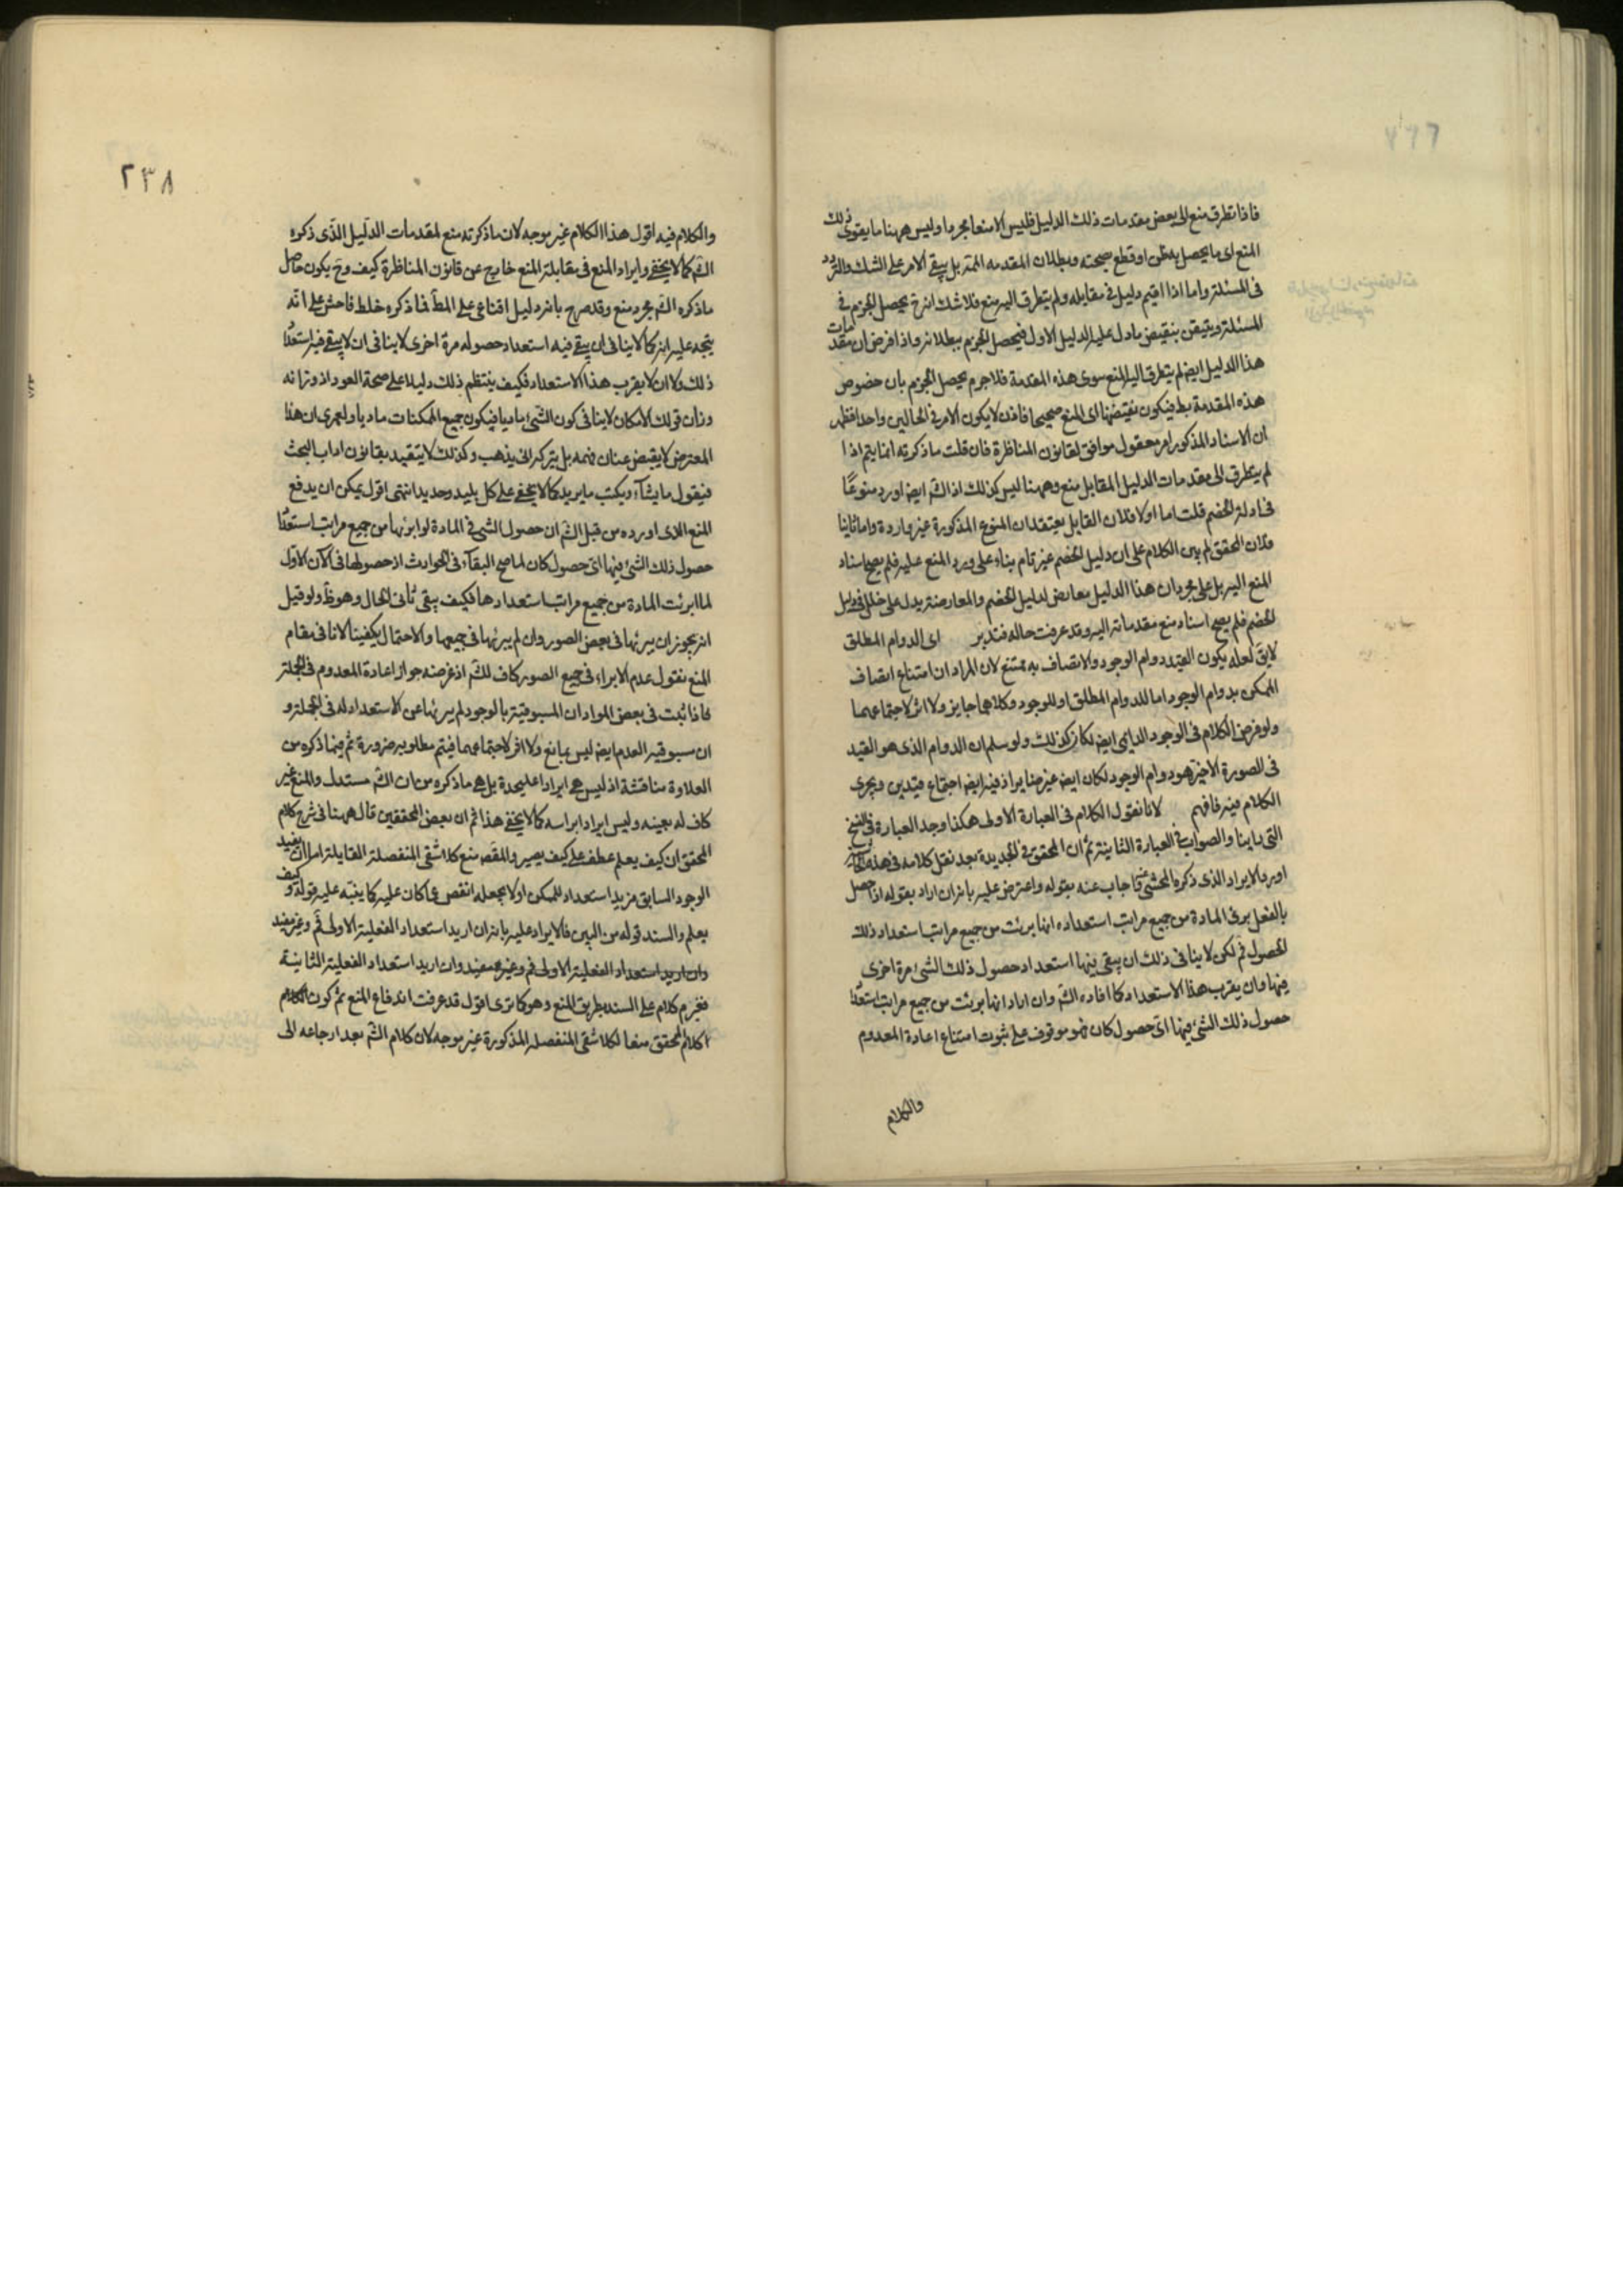 فاذا تطرق منع الى بعض مقدمات ذلك الدليل فليس الامنعا مجردا وليس ههنا ما يقوى ذلك
المنع اى ما يحصل به ظن او قطع بصحته وبطلان المقدمه المم بل يبقى الامر على الشك والتردد
فى المسئلة واما اذا اقيم دليل فى مقابله ولم يتطرق اليه منع فلا شك انه ح يحصل الجزم فى
المسئلة ويتيقن بنقيض ما دل عليه الدليل الاول فيحصل الجزم ببطلانه واذا فرض ان مقدمات
هذا الدليل ايضا لم يتطرق اليه المنع سوى هذه المقدمة فلا جرم يحصل الجزم بان خصوص
هذه المقدمة بط فيكون نقيضها اى المنع صحيحا فاذن لا يكون الامر فى الحالين واحدا فظهر
ان الاسناد المذكور امر معقول موافق لقانون المناظرة فان قلت ما ذكرته انما يتم اذا
لم يتطرق الى مقدمات الدليل المقابل منع وههنا ليس كذلك اذ الش ايضا اورد منوعًا
فى ادلة الخصم قلت اما اولا فلان القايل يعتقد ان المنوع المذكورة غير واردة واما ثانيا
فلان المحقق لم يبن الكلام على ان دليل الخصم غير تام بناء على ورود المنع عليه فلم يصح اسناد
المنع اليه بل على مجرد ان هذا الدليل معارض لدليل الخصم والمعارضة يدل على خلل فى دليل
الخصم فلم يصح اسناد منع مقدماته اليه وقد عرفت حاله فتدبر اى الدوام المطلق
لايق لعله يكون القيد دوام الوجود والاتصاف به ممتنع لان المراد ان امتناع اتصاف
الممكن بدوام الوجود اما للدوام المطلق او للوجود وكلاهما جايز ولا اثر لاجتماعهما
ولو فرض الكلام فى الوجود الدايمى ايضا لكان كذلك ولو سلم ان الدوام الذى هو القيد
فى الصورة الاخيرة هو دوام الوجود لكان ايضا غير ضاير اذ فيه ايضا اجتماع قيدين ويجرى
الكلام فيه فافهم لانا نقول الكلام فى العبارة الاولى هكذا وجد العبارة فى النسخ
التى راينا والصواب فى العبارة الثانية ثم ان المحقق فى الجديدة بعد نقل كلامه فى هذه
اورد الايراد الذى ذكره المحشى فاجاب عنه بقوله واعترض عليه بانه ان اراد بقوله اذا حصل
بالفعل برئ المادة من جميع مراتب استعداده انها برئت من جميع مراتب استعداد ذلك
الحصول فم لكن لا ينافى ذلك ان يبقى فيها استعداد حصول ذلك الشئ مرة اخرى
فيها وان يقرب هذا الاستعداد كما افاده الش وان اراد انها برئت من جميع مراتب استعداد
حصول ذلك الشئ فيها اى حصول كان فهو موقوف على ثبوت امتناع اعادة المعدوم
والكلام
٢٣٨
والكلام فيه اقول هذا الكلام غير موجه لان ما ذكرته منع لمقدمات الدليل الذى ذكره
الش كما لا يخفى وايراد المنع فى مقابلة المنع خارج عن قانون المناظرة كيف وح يكون حاصل
ما ذكره الش مجرد منع وقد صرح بانه دليل اقناعى على المط فما ذكره خلط فاحش على انّه
يتجه عليه انه كما لا ينافى ان يبقى فيه استعداد حصوله مرة اخرى لا ينافى ان لا يبقى فيه استعداد
ذلك ولا ان لا يقرب هذا الاستعداد فكيف ينتظم ذلك دليلا على صحة العود اذ وزانه
وزان قولك الامكان لا ينافى كون الشئ ماديا فيكون جميع الممكنات ماديا ولعمرى ان هذا
المعترض لا يقبض عنان فهمه بل يتركه انى يذهب وكذلك لا يتقيد بقانون اداب البحث
فيقول ما يشآء ويكتب ما يريد كما لا يخفى على كل بليد وحديد انتهى اقول يمكن ان يدفع
المنع الذى اورده من قبل الش ان حصول الشئ فى المادة لو ابرئها من جميع مراتب استعداد
حصول ذلك الشئ فيها اى حصول كان لما صح البقآء فى الحوادث اذ حصولها فى الآن الاول
لما ابرئت المادة من جميع مراتب استعدادها فكيف يبقى ثانى الحال وهو ظ ولو قيل
انه يجوز ان يبرئها فى بعض الصور وان لم يبرئها فى جميعها والاحتمال يكفينا لانا فى مقام
المنع نقول عدم الابراء فى جميع الصور كاف للش اذ غرضه جواز اعادة المعدوم فى الجملة
فاذا ثبت فى بعض المواد ان المسبوقية بالوجود لم يبرئها عن الاستعداد له فى الجملة و
ان مسبوقيه العدم ايضا ليس بمانع ولا اثر لاجتماعهما فيتم مطلوبه ضرورة ثم فيما ذكره من
العلاوة مناقشة اذ ليس هى ايرادا عليحدة بل هى ما ذكره من ان الش مستدل والمنع غير
كاف له بعينه وليس ايرادا براسه كما لا يخفى هذا ثم ان بعض المحققين قال ههنا فى شرح كلام
المحقق ان كيف يعلم عطف على كيف يصير والمقصم منع كلا شقى المنفصلة القايلة اما ان يفيد
الوجود السابق مزيد استعداد للممكن او لا يجعله انقص عما كان عليه كما ينبّه عليه قوله و كيف
يعلم والسند قوله من البين فالايراد عليه بانه ان اريد استعداد الفعلية الاولى فم وغير مفيد
وان اريد استعداد الفعلية الاولى فم وغير مفيد وان اريد استعداد الفعلية الثانية
فغير م كلام على السند بطريق المنع وهو كما ترى اقول قد عرفت اندفاع المنع ثم كون الكلام
كلام المحقق منعا لكلا شقى المنفصله المذكورة غير موجه لان كلام الش بعد ارجاعه الى